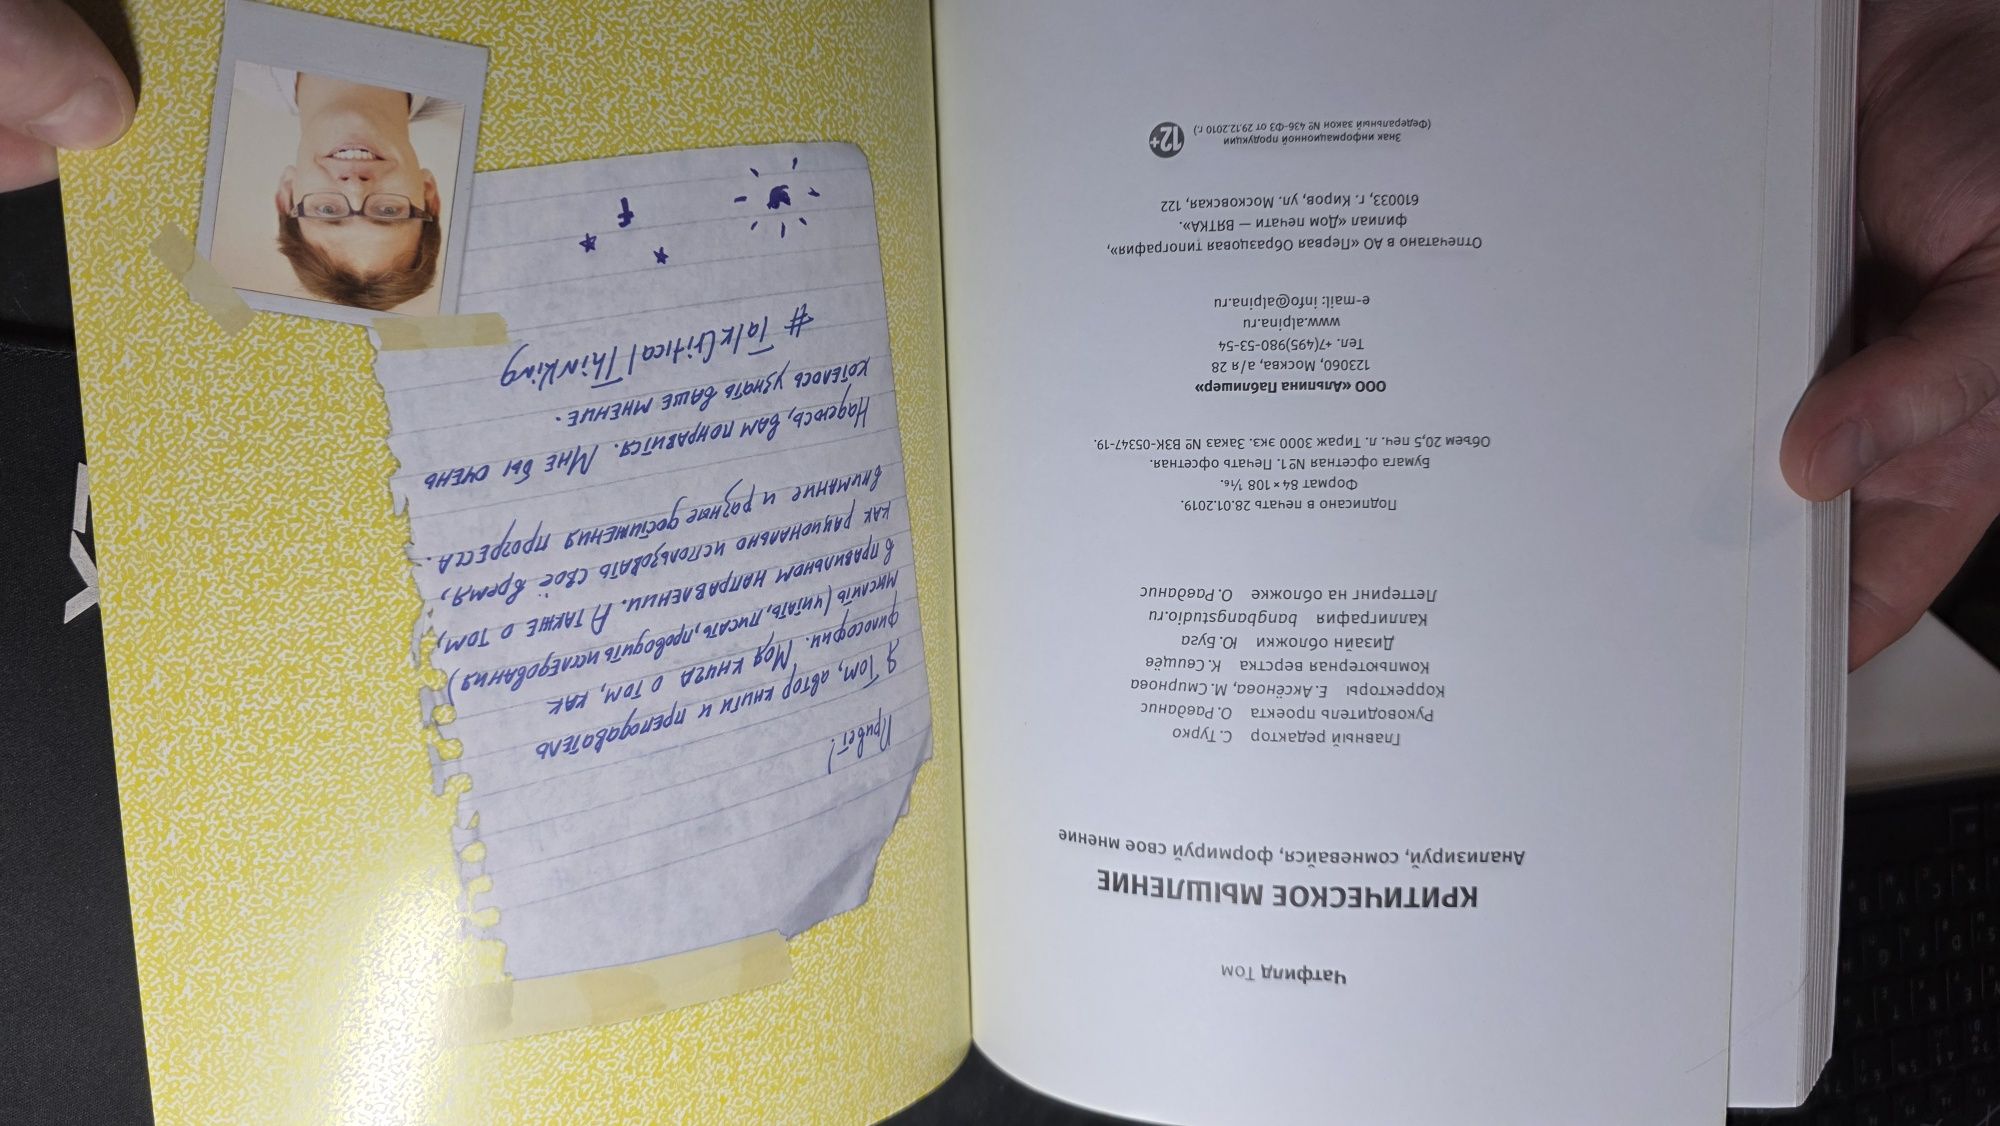 Чатфилд Том
КРИТИЧЕСКОЕ МЫШЛЕНИЕ
Анализируй, сомневайся, формируй свое мнение
Главный редактор С. Турко
Руководитель проекта О. Равданис
Корректоры Е. Аксёнова, М. Смирнова
Компьютерная верстка К. Свищёв
Дизайн обложки Ю. Буга
Каллиграфия bangbangstudio.ru
Леттеринг на обложке О. Равданис
Подписано в печать 28.01.2019.
Формат 84×108 1/16.
Бумага офсетная №1. Печать офсетная.
Объем 20,5 печ. л. Тираж 3000 экз. Заказ № ВЗК-05347-19.
ООО «Альпина Паблишер»
123060, Москва, а/я 28
Тел. +7(495)980-53-54
www.alpina.ru
e-mail: info@alpina.ru
Отпечатано в АО «Первая Образцовая типография»,
филиал «Дом печати — ВЯТКА».
610033, г. Киров, ул. Московская, 122
Знак информационной продукции
(Федеральный закон № 436-ФЗ от 29.12.2010 г.)
12+
Привет!
Я Том, автор книги и преподаватель
философии. Моя книга о том, как
мыслить (читать, писать, проводить исследования)
в правильном направлении. А также о том,
как рационально использовать своё время,
внимание и разные достижения прогресса.
Надеюсь, вам понравится. Мне бы очень
хотелось узнать ваше мнение.
# TalkCriticalThinking
f